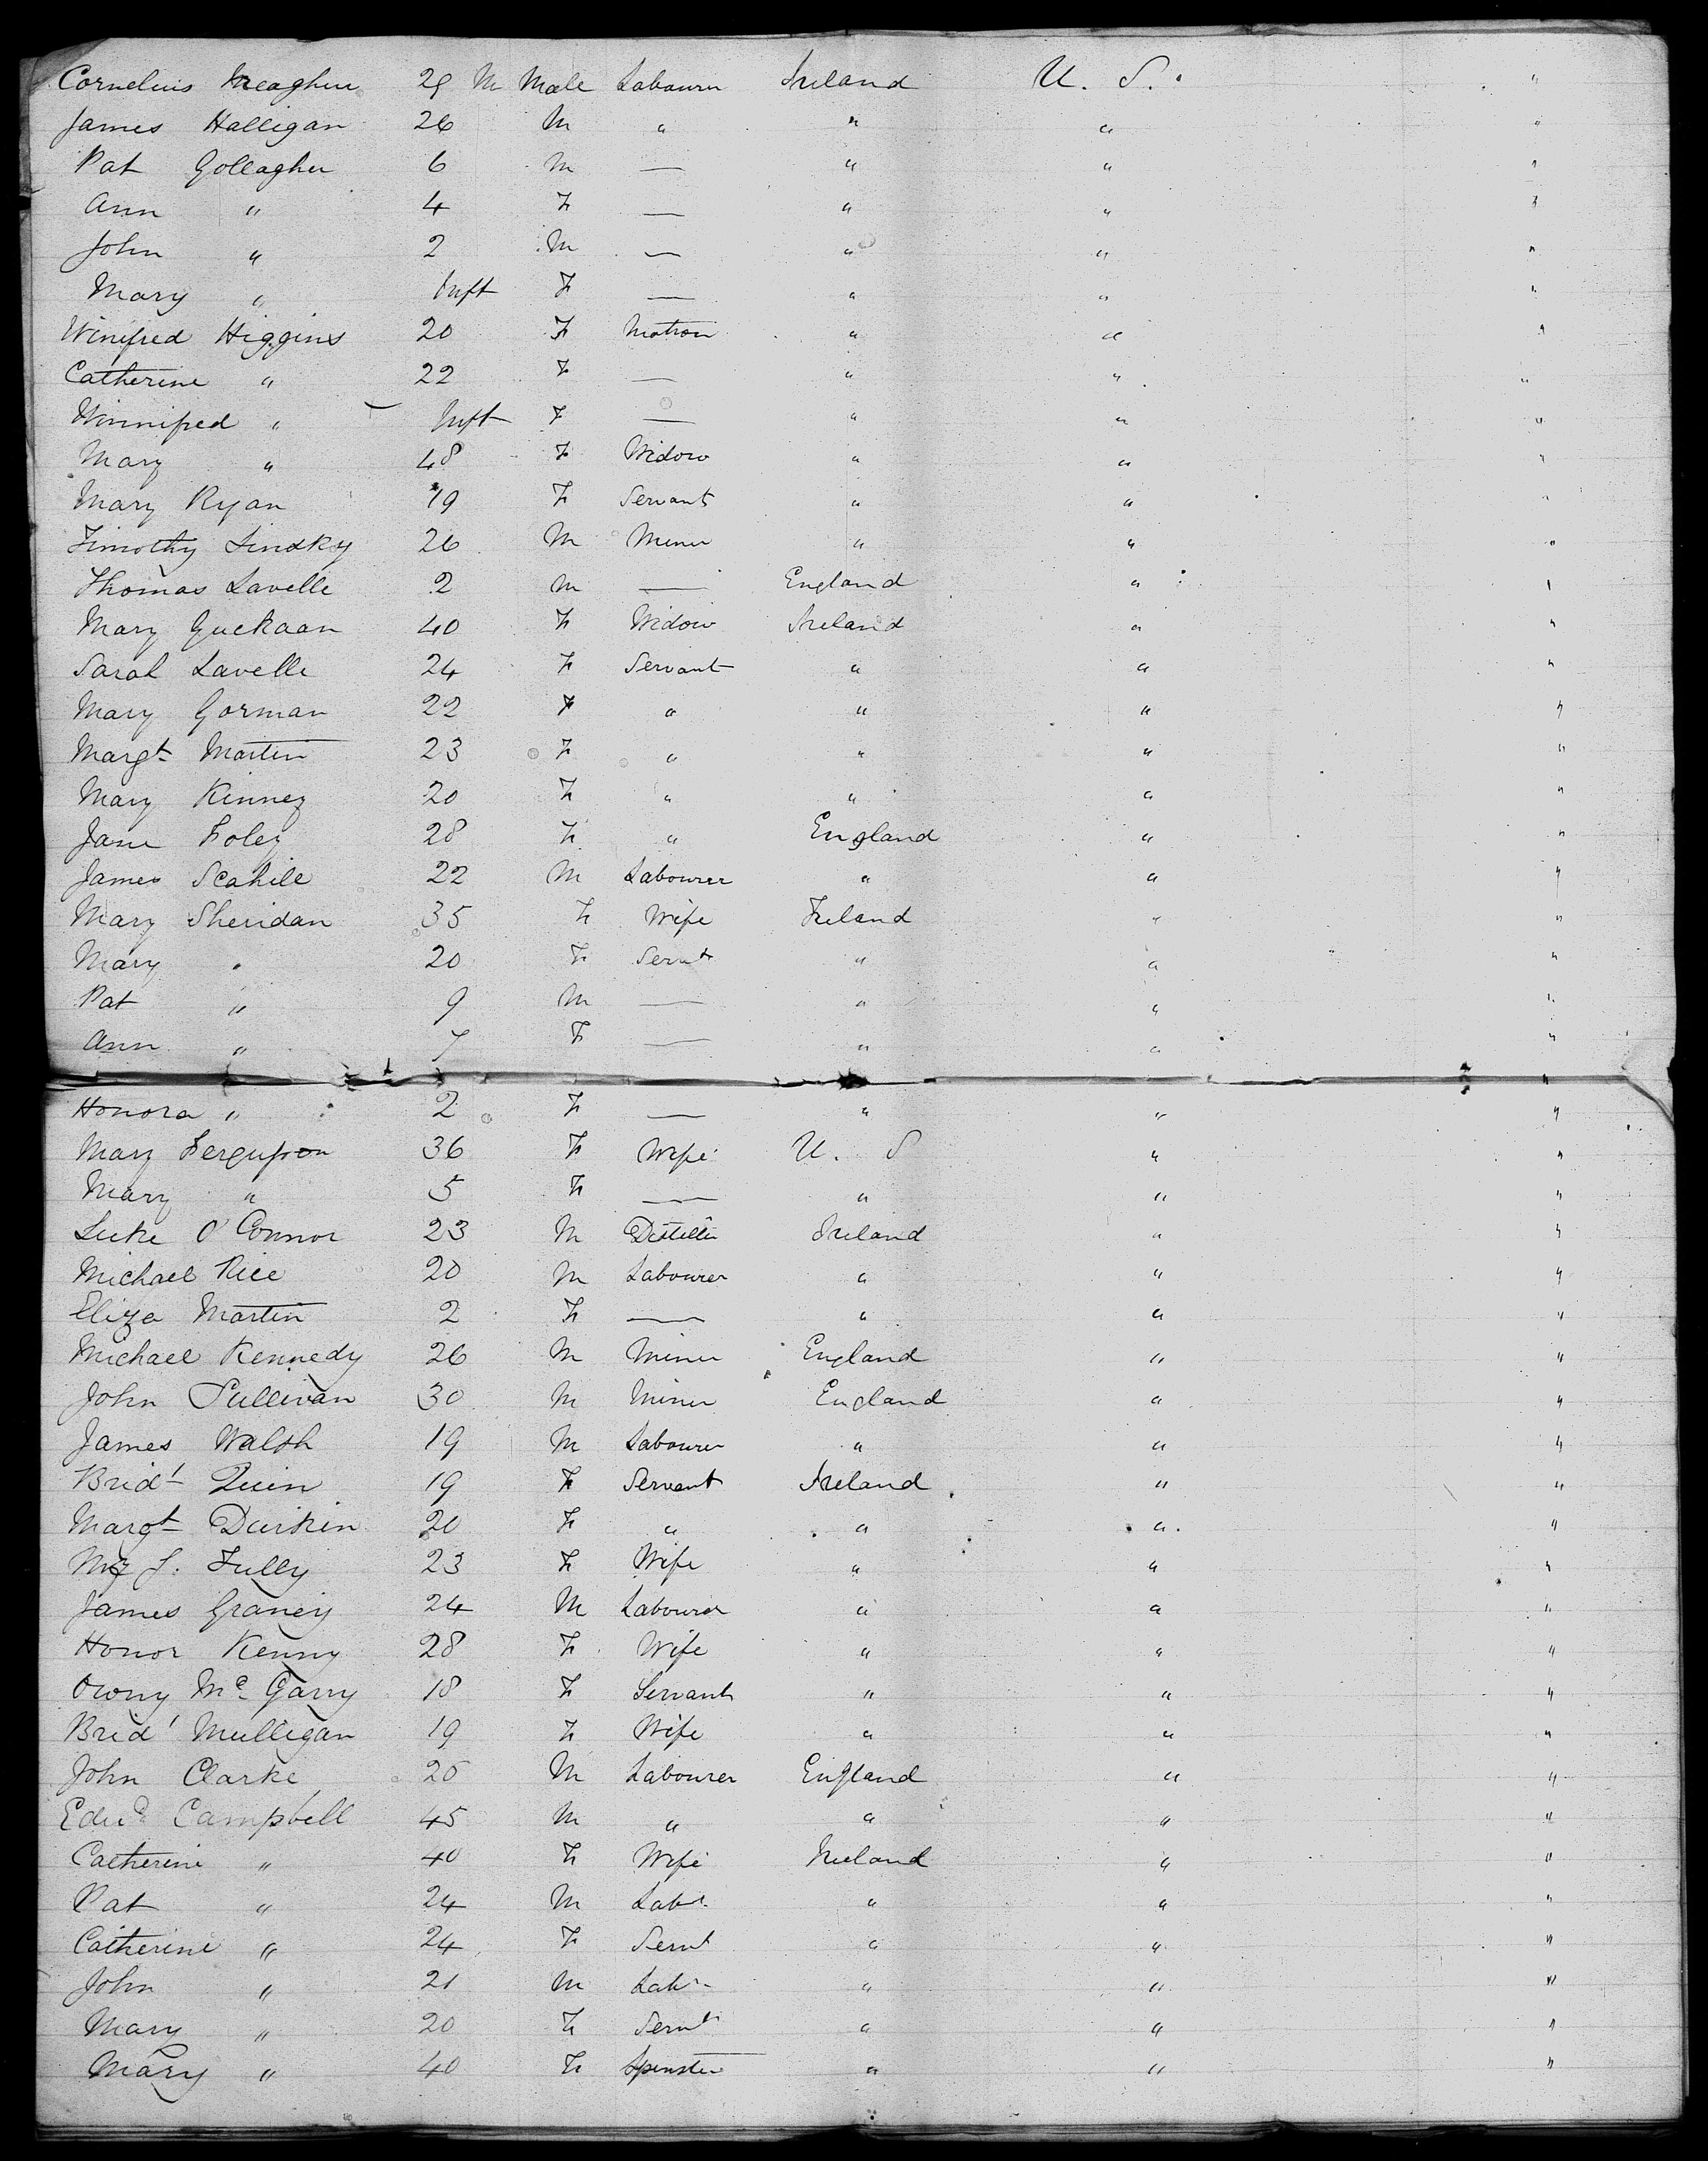 Cornelius Meagher 29 M Male Labourer Ireland U. S. "
James Halligan 26 M " " " "
Pat Gollagher 6 M — " " "
Ann " 4 F — " " "
John " 2 M — " " "
Mary " Inft F — " " "
Winifred Higgins 20 F Matron " " "
Catherine " 22 F — " " "
Winnifred " Inft F — " " "
Mary " 48 F Widow " " "
Mary Ryan 19 F Servant " " "
Timothy Lindky 26 M Miner " " "
Thomas Lavelle 2 M — England " "
Mary Guckaan 40 F Widow Ireland " "
Sarah Lavelle 24 F Servant " " "
Mary Gorman 22 F " " " "
Margt Martin 23 F " " " "
Mary Kinney 20 F " " " "
Jane Foley 28 F " England " "
James Scahill 22 M Labourer " " "
Mary Sheridan 35 F Wife Ireland " "
Mary " 20 F Servt " " "
Pat " 9 M — " " "
Ann " 7 F — " " "
Honora " 2 F — " " "
Mary Ferguson 36 F Wife U. S " "
Mary " 5 F — " " "
Luke O'Connor 23 M Distiller Ireland " "
Michael Rice 20 M Labourer " " "
Eliza Martin 2 F — " " "
Michael Kennedy 26 M Miner England " "
John Sullivan 30 M Miner England " "
James Walsh 19 M Labourer " " "
Bridt Quin 19 F Servant Ireland " "
Margt Durkin 20 F " " " "
My J. Tully 23 F Wife " " "
James Graney 24 M Labourer " " "
Honor Kenny 28 F Wife " " "
Owny Mc Garry 18 F Servant " " "
Brid' Mulligan 19 F Wife " " "
John Clarke 20 M Labourer England " "
Edwd Campbell 45 M " " " "
Catherine " 40 F Wife Ireland " "
Pat " 24 M Labr. " " "
Catherine " 24 F Servt " " "
John " 21 M Labr " " "
Mary " 20 F Servt " " "
Mary " 40 F Spinster " " "